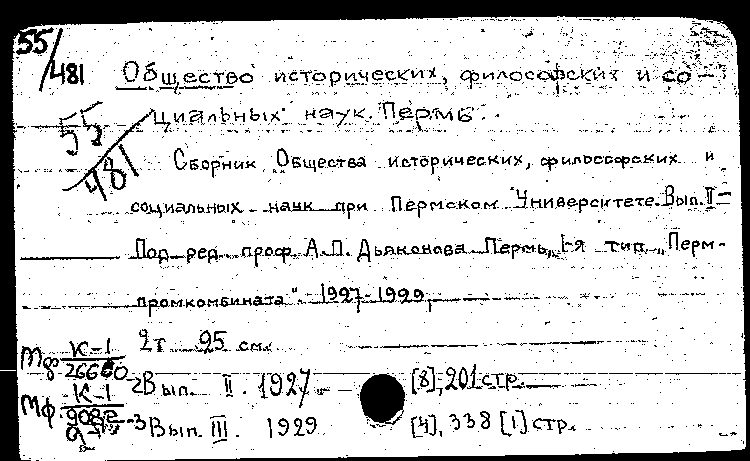 55/481 Общество исторических, философских и со-
55/481 циальных наук. Пермь.
Сборник Общества исторических, философских и
социальных наук при Пермском Университете. Вып. II-
Под ред. проф. А.П. Дьяконова Пермь, I-я тип. „Перм-
промкомбината" 1927-1929,
2т 25 см.
Мф К-1
26660 2 Вып. II. 1927. [8], 201 стр.
Мф К-1
3 Вып. III. 1929 [4], 338 [1] стр.